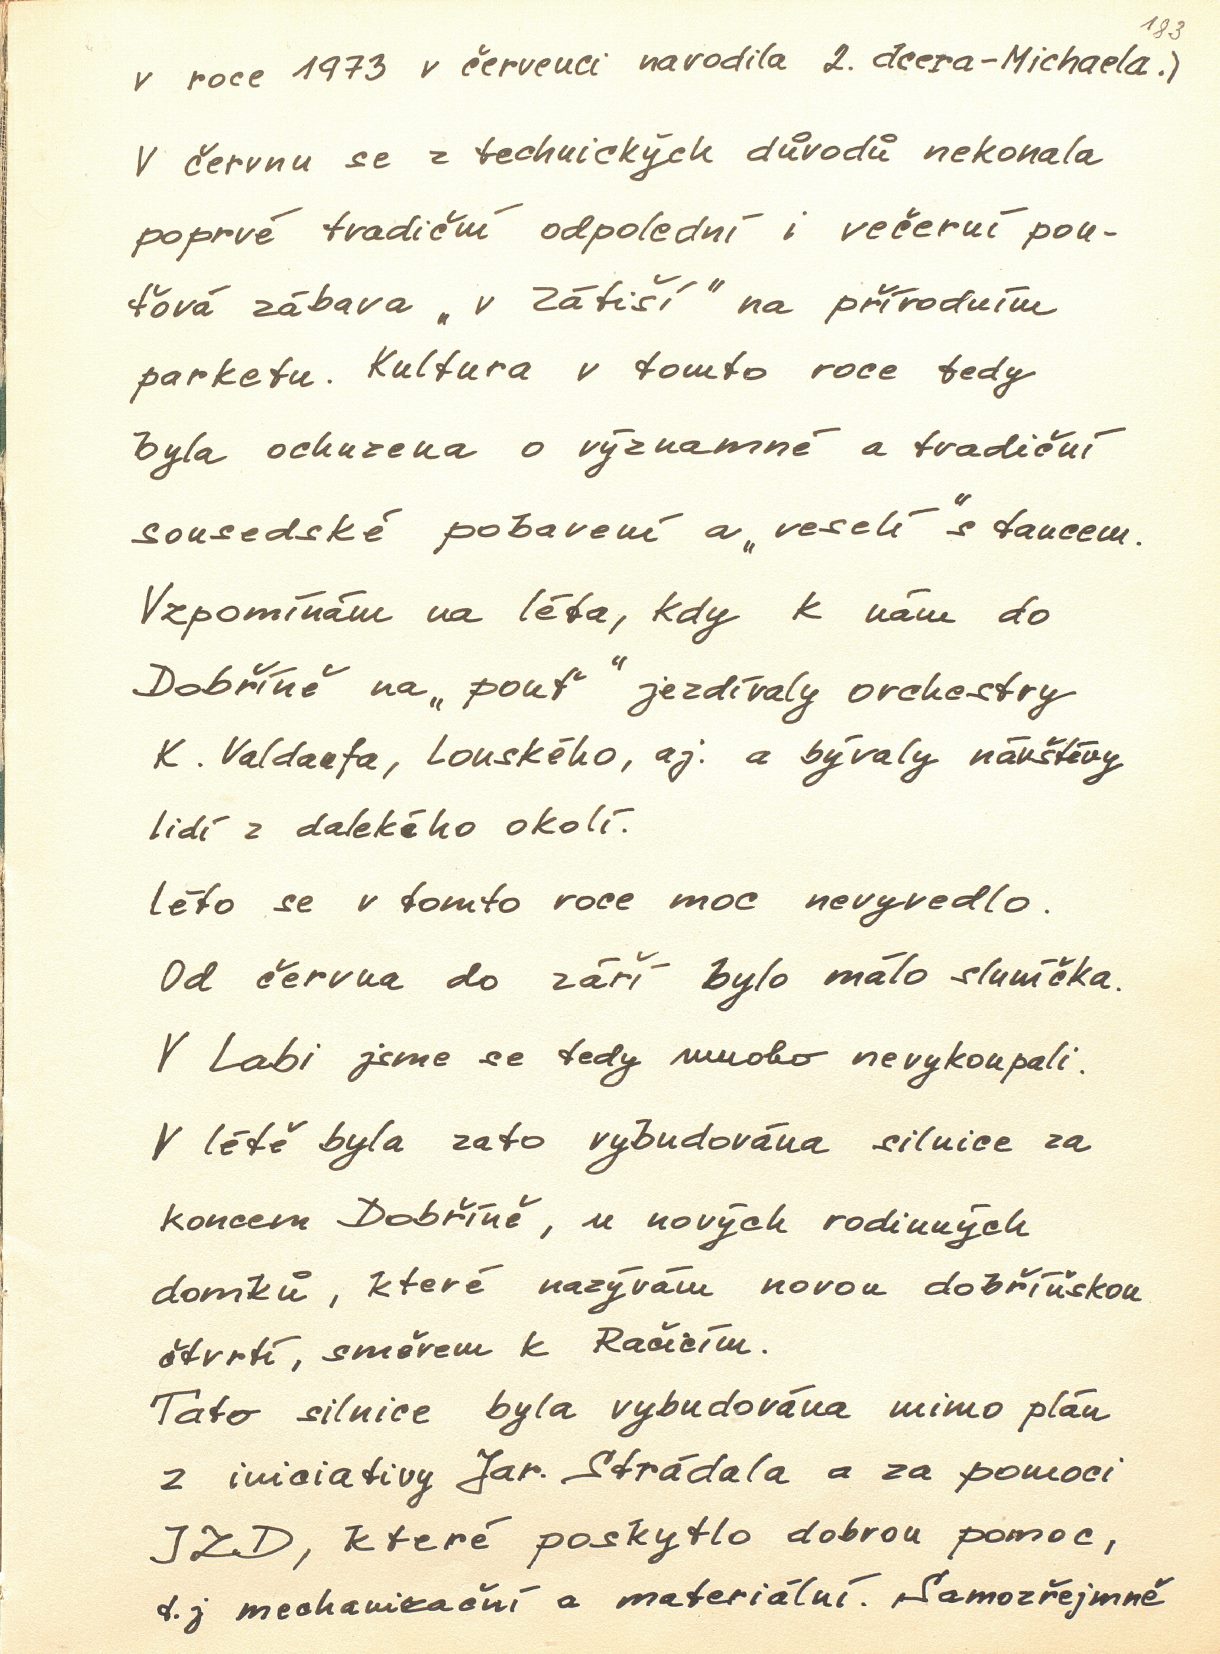 183
v roce 1973 v červenci narodila 2. dcera-Michaela.)
V červnu se z technických důvodů nekonala
poprvé tradiční odpolední i večerní pou-
ťová zábava „v Zátiší" na přírodním
parketu. Kultura v tomto roce tedy
byla ochuzena o významné a tradiční
sousedské pobavení a „veselí" s tancem.
Vzpomínám na léta, kdy k nám do
Dobříně na „pouť" jezdívaly orchestry
K. Valdaufa, Louského, aj. a bývaly návštěvy
lidí z dalekého okolí.
Léto se v tomto roce moc nevyvedlo.
Od června do září bylo málo sluníčka.
V Labi jsme se tedy mnoho nevykoupali.
V létě byla zato vybudována silnice za
koncem Dobříně, u nových rodinných
domků, které nazývám novou dobříňskou
čtvrtí, směrem k Račicím.
Tato silnice byla vybudována mimo plán
z iniciativy Jar. Strádala a za pomoci
JZD, které poskytlo dobrou pomoc,
t.j mechanizační a materiální. Samozřejmně